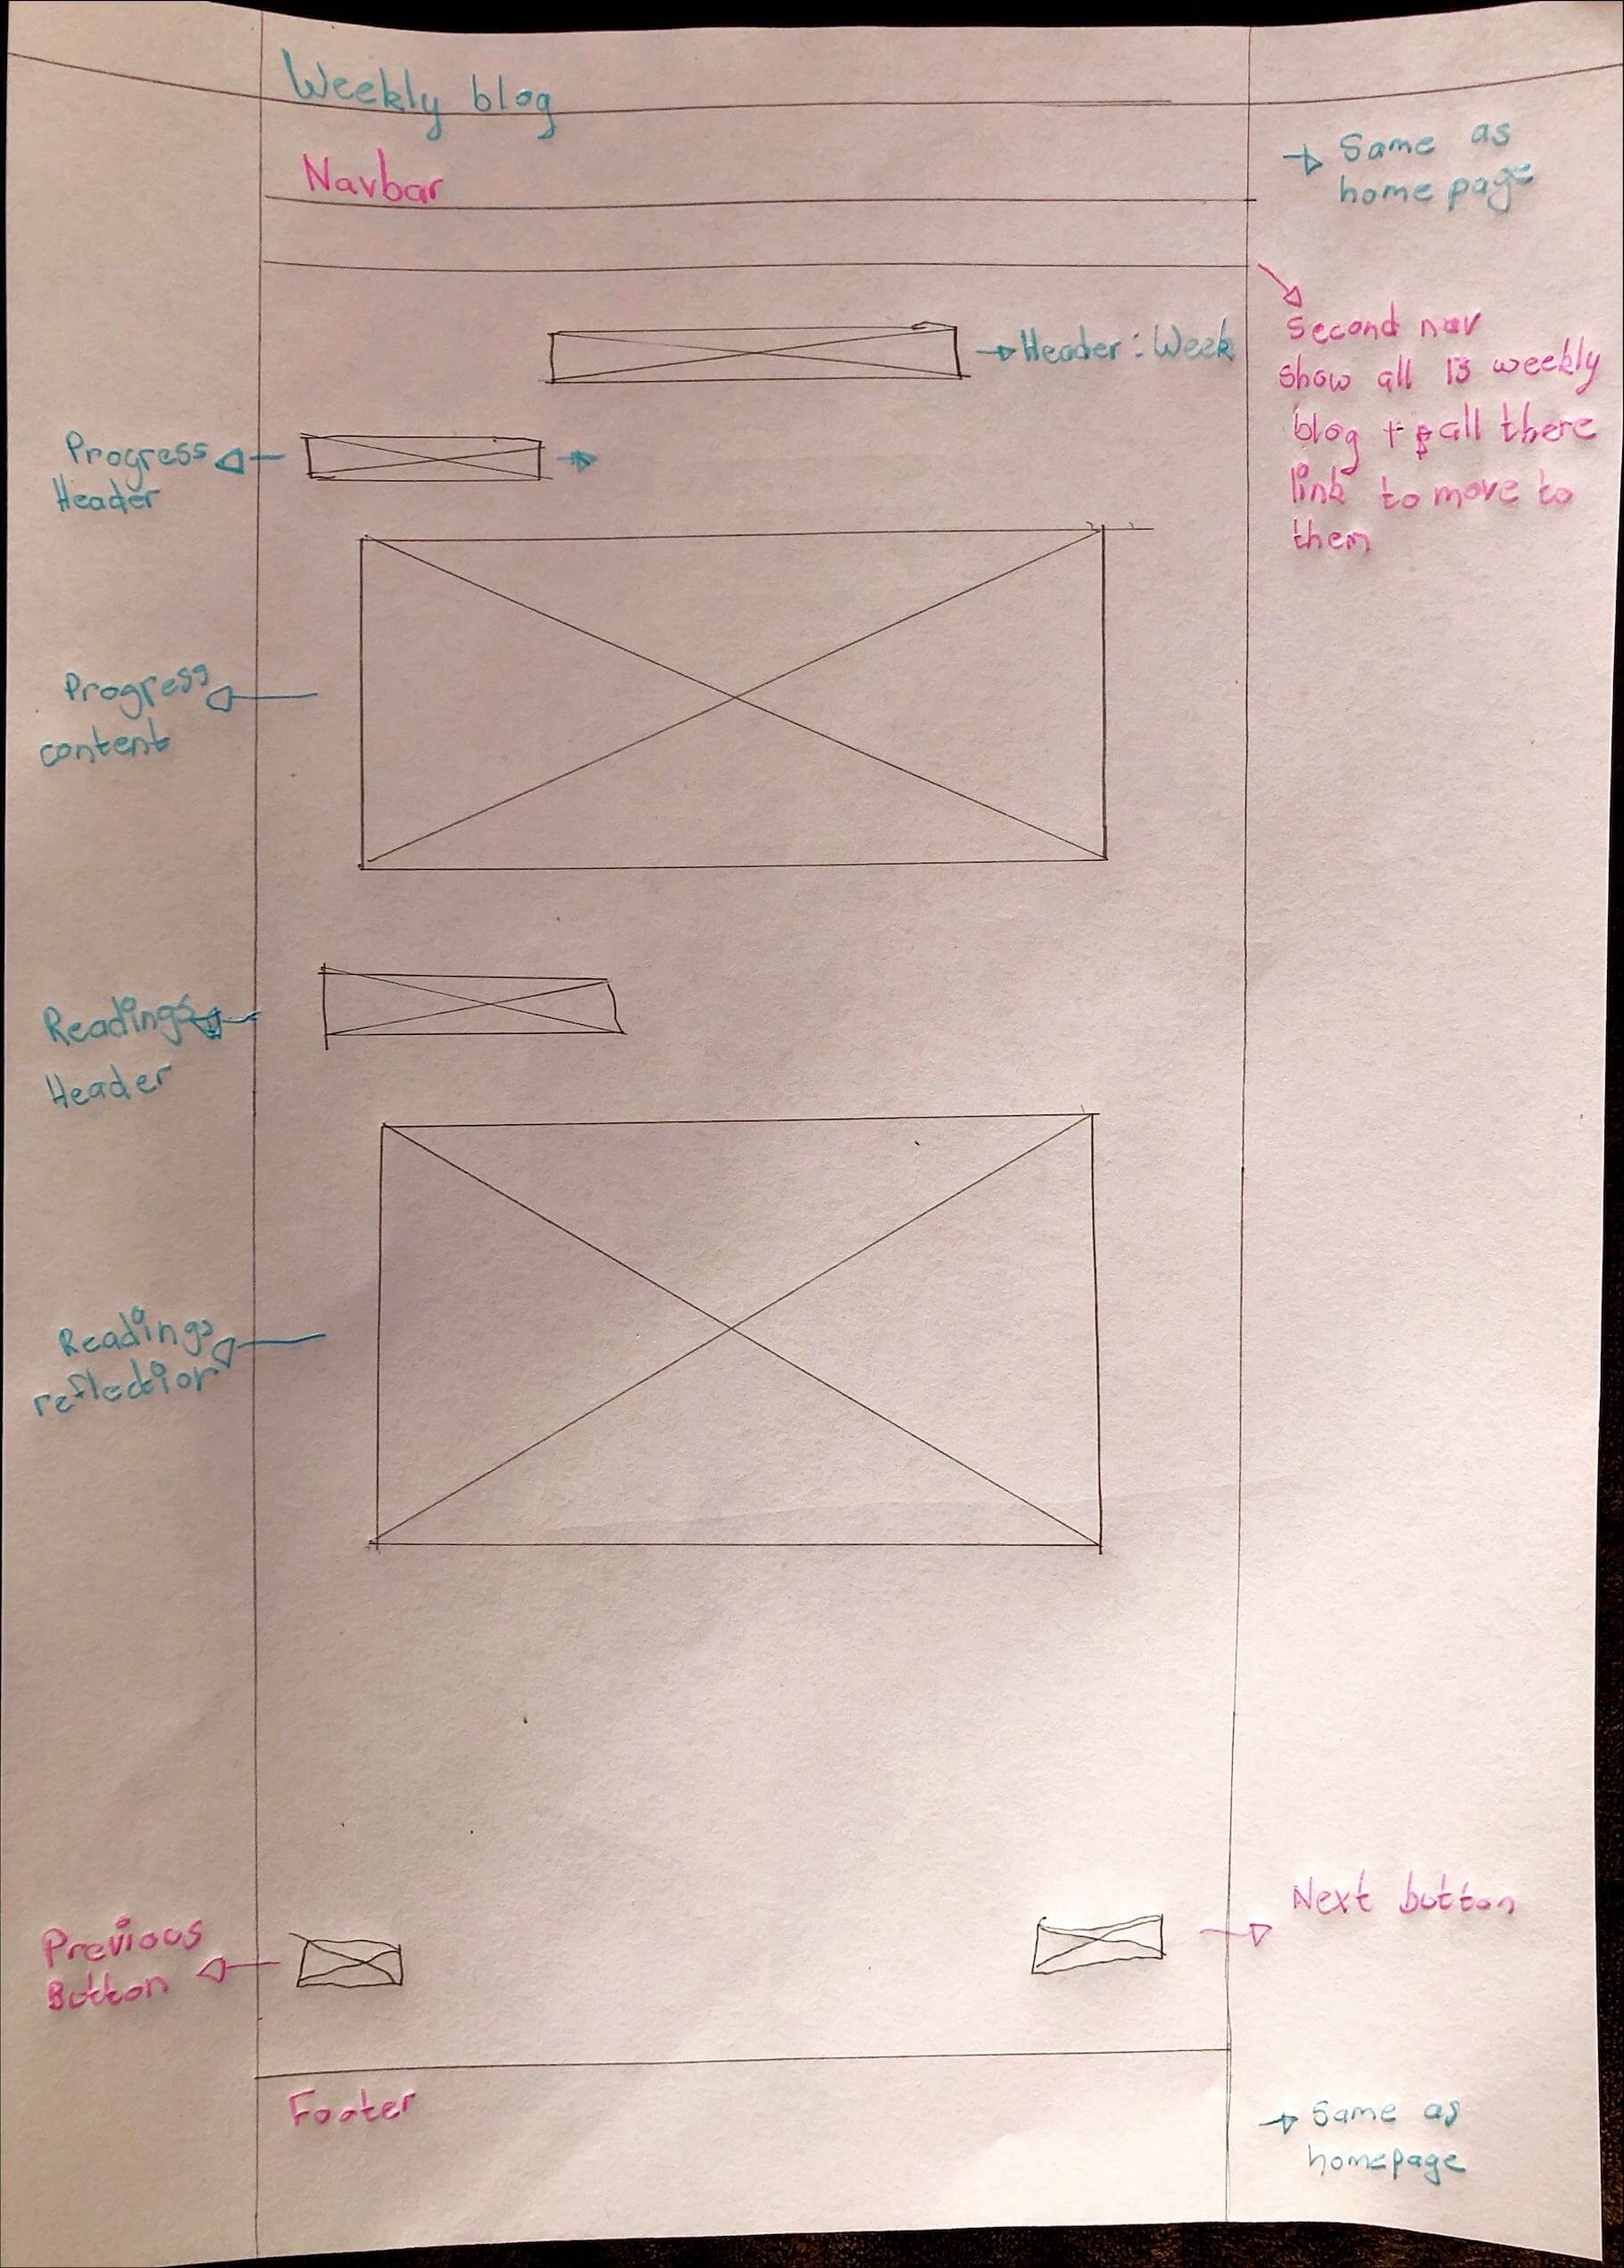 Weekly blog
Navbar
Same as
home page
Header: Week
Second nav
show all 13 weekly
blog + all there
link to move to
them
Progress
Header
Progress
content
Readings
Header
Readings
reflection
Next button
Previous
Button
Footer
Same as
homepage